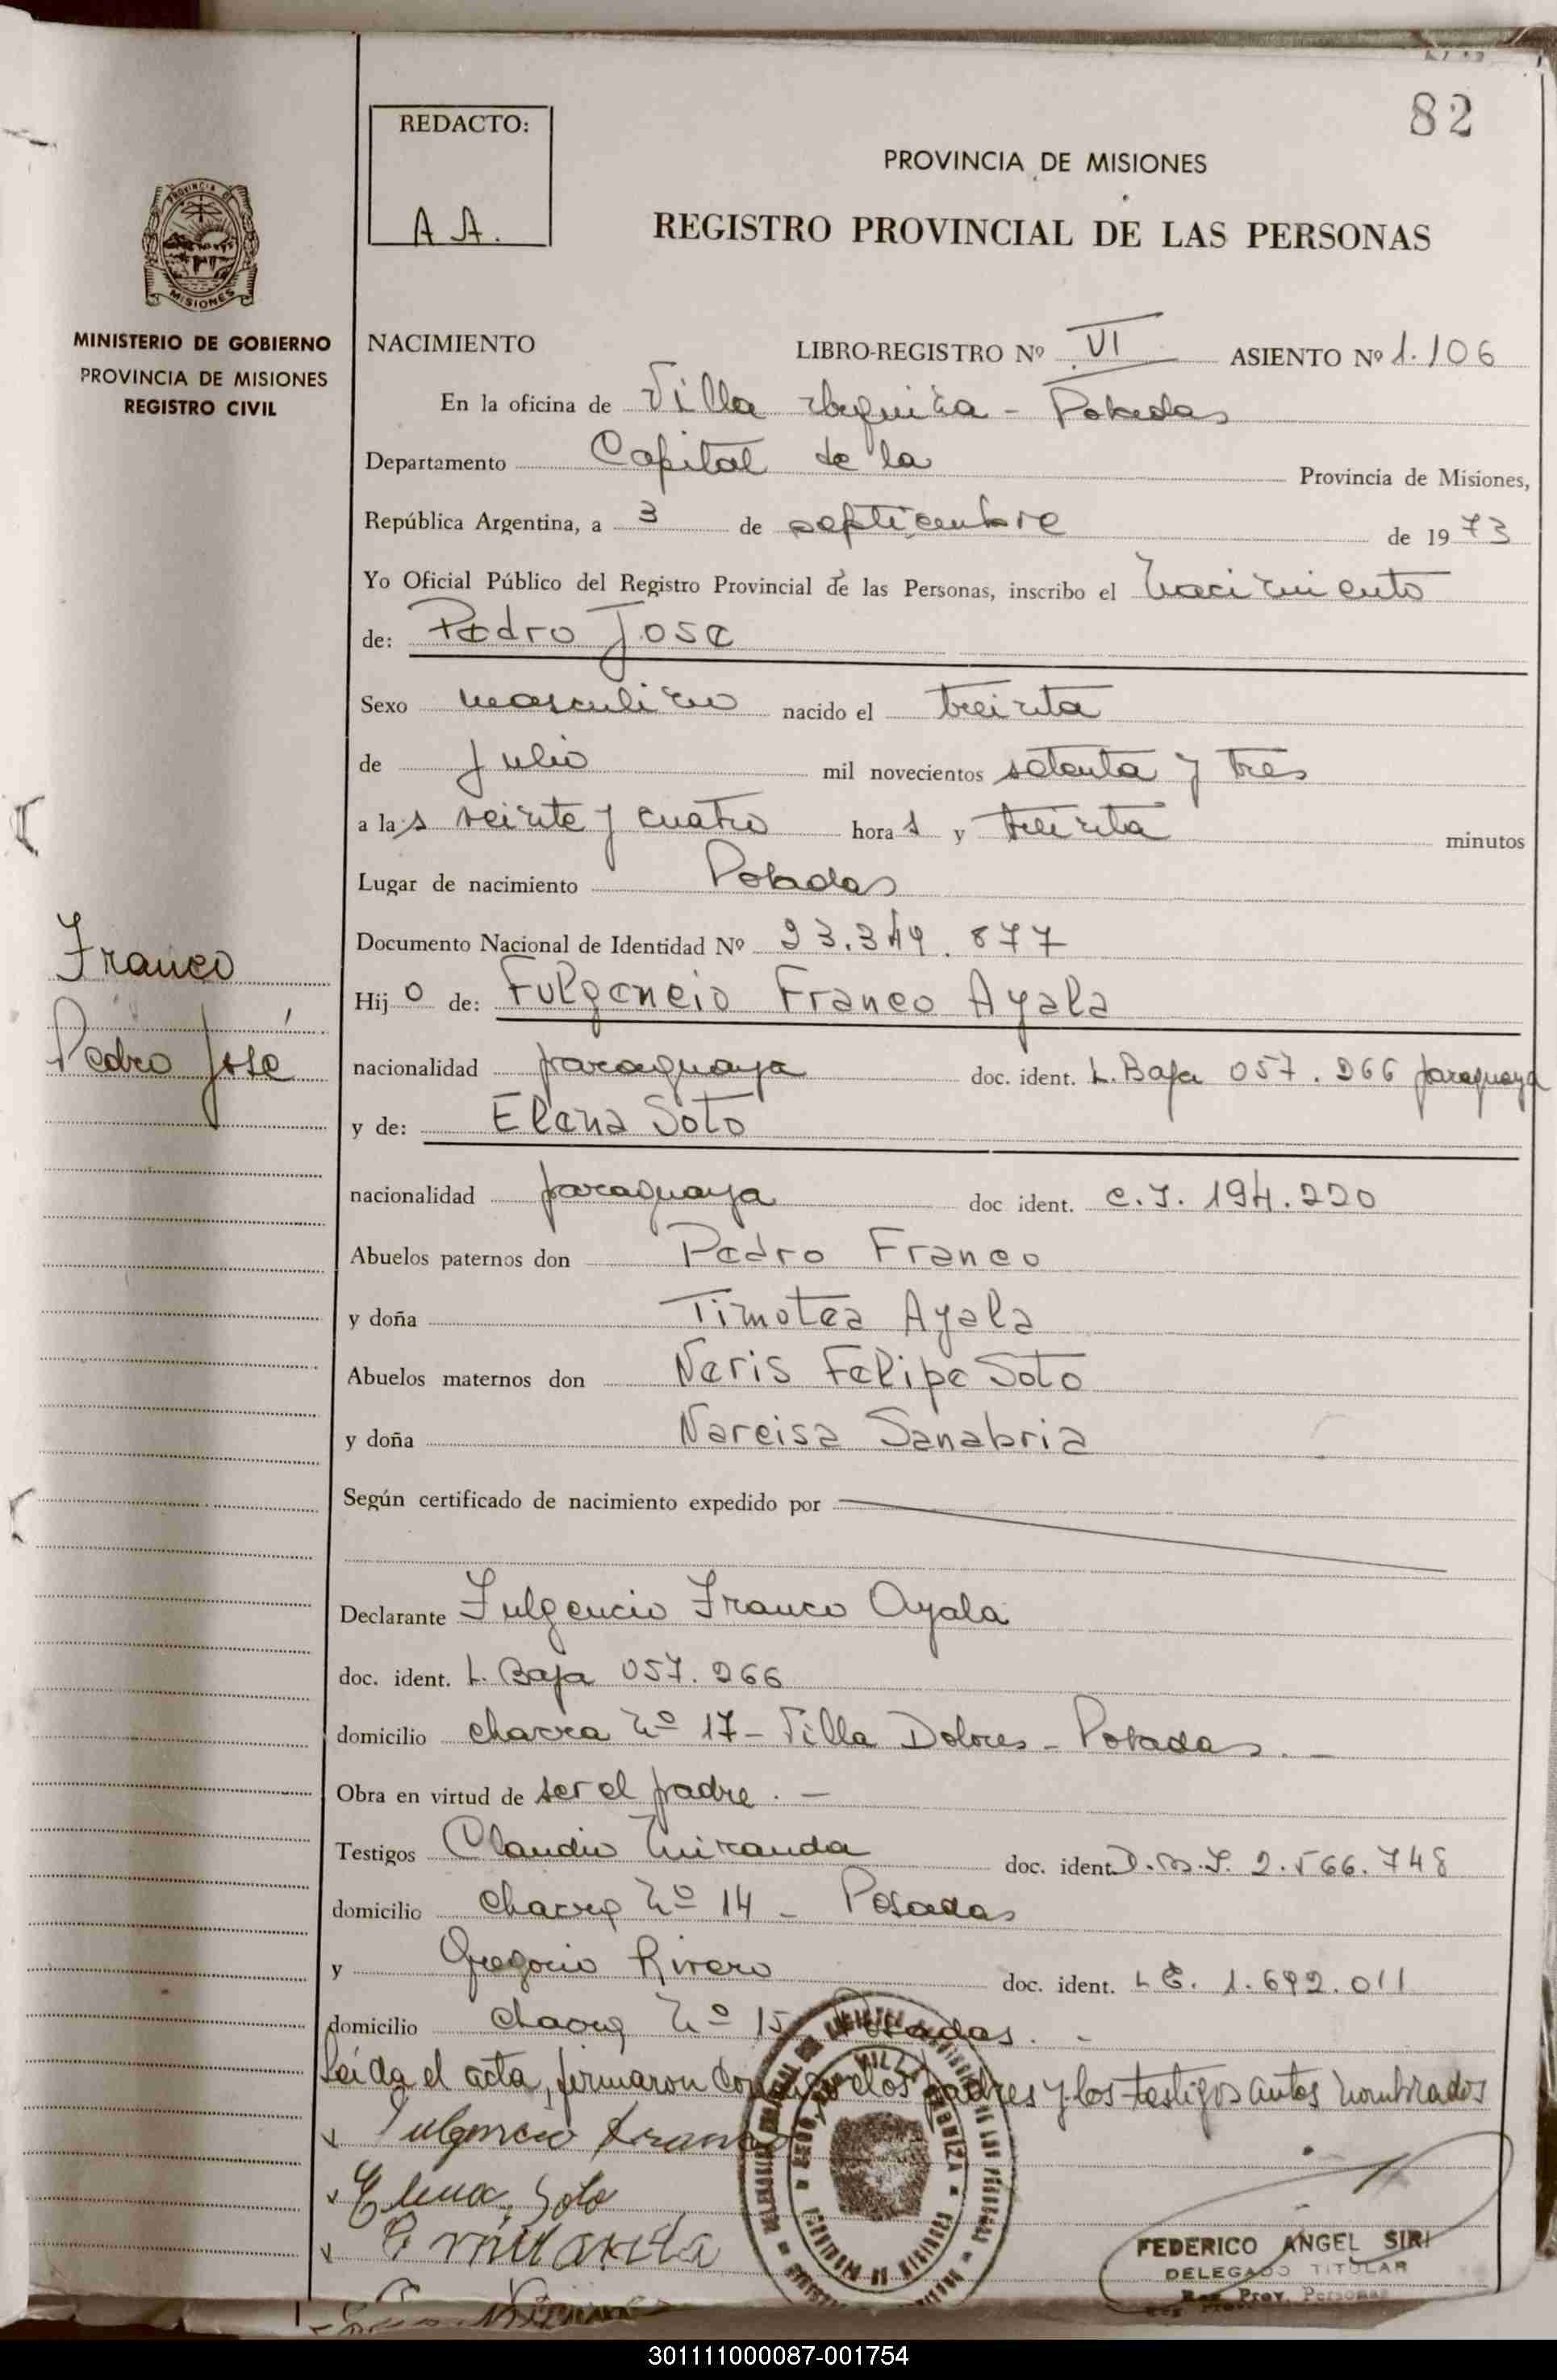 82
REDACTO:
A A.
PROVINCIA DE MISIONES
REGISTRO PROVINCIAL DE LAS PERSONAS
MISIONES
MINISTERIO DE GOBIERNO
PROVINCIA DE MISIONES
REGISTRO CIVIL
NACIMIENTO LIBRO-REGISTRO Nº VI ASIENTO Nº 1.106
En la oficina de Villa Urquiza - Posadas
Departamento Capital de la Provincia de Misiones,
República Argentina, a 3 de septiembre de 1973
Yo Oficial Público del Registro Provincial de las Personas, inscribo el nacimiento
de: Pedro Jose
Sexo masculino nacido el treinta
de julio mil novecientos setenta y tres
a las veinte y cuatro horas y treinta minutos
Lugar de nacimiento Posadas
Documento Nacional de Identidad Nº 23.349.877
Franco
Pedro José
Hijo de: Fulgencio Franco Ayala
nacionalidad paraguaya doc. ident. L. Baja 057.266 paraguaya
y de: Elena Soto
nacionalidad paraguaya doc ident. C.I. 194.220
Abuelos paternos don Pedro Franco
y doña Timotea Ayala
Abuelos maternos don Neris Felipe Soto
y doña Narcisa Sanabria
Según certificado de nacimiento expedido por
Declarante Fulgencio Franco Ayala
doc. ident. L. Baja 057.266
domicilio chacra Nº 17 - Villa Dolores - Posadas. -
Obra en virtud de ser el padre. -
Testigos Claudio Miranda doc. ident. D.M.I. 2.566.748
domicilio chacra Nº 14 - Posadas
y Gregorio Rivero doc. ident. L E. 1.692.011
domicilio chacra Nº 15 - Posadas. -
Leída el acta, firmaron conmigo los padres y los testigos antes nombrados
Fulgencio Franco
Elena Soto
C Miranda
FEDERICO ANGEL SIRI
DELEGADO TITULAR
Reg. Prov. Personas
301111000087-001754